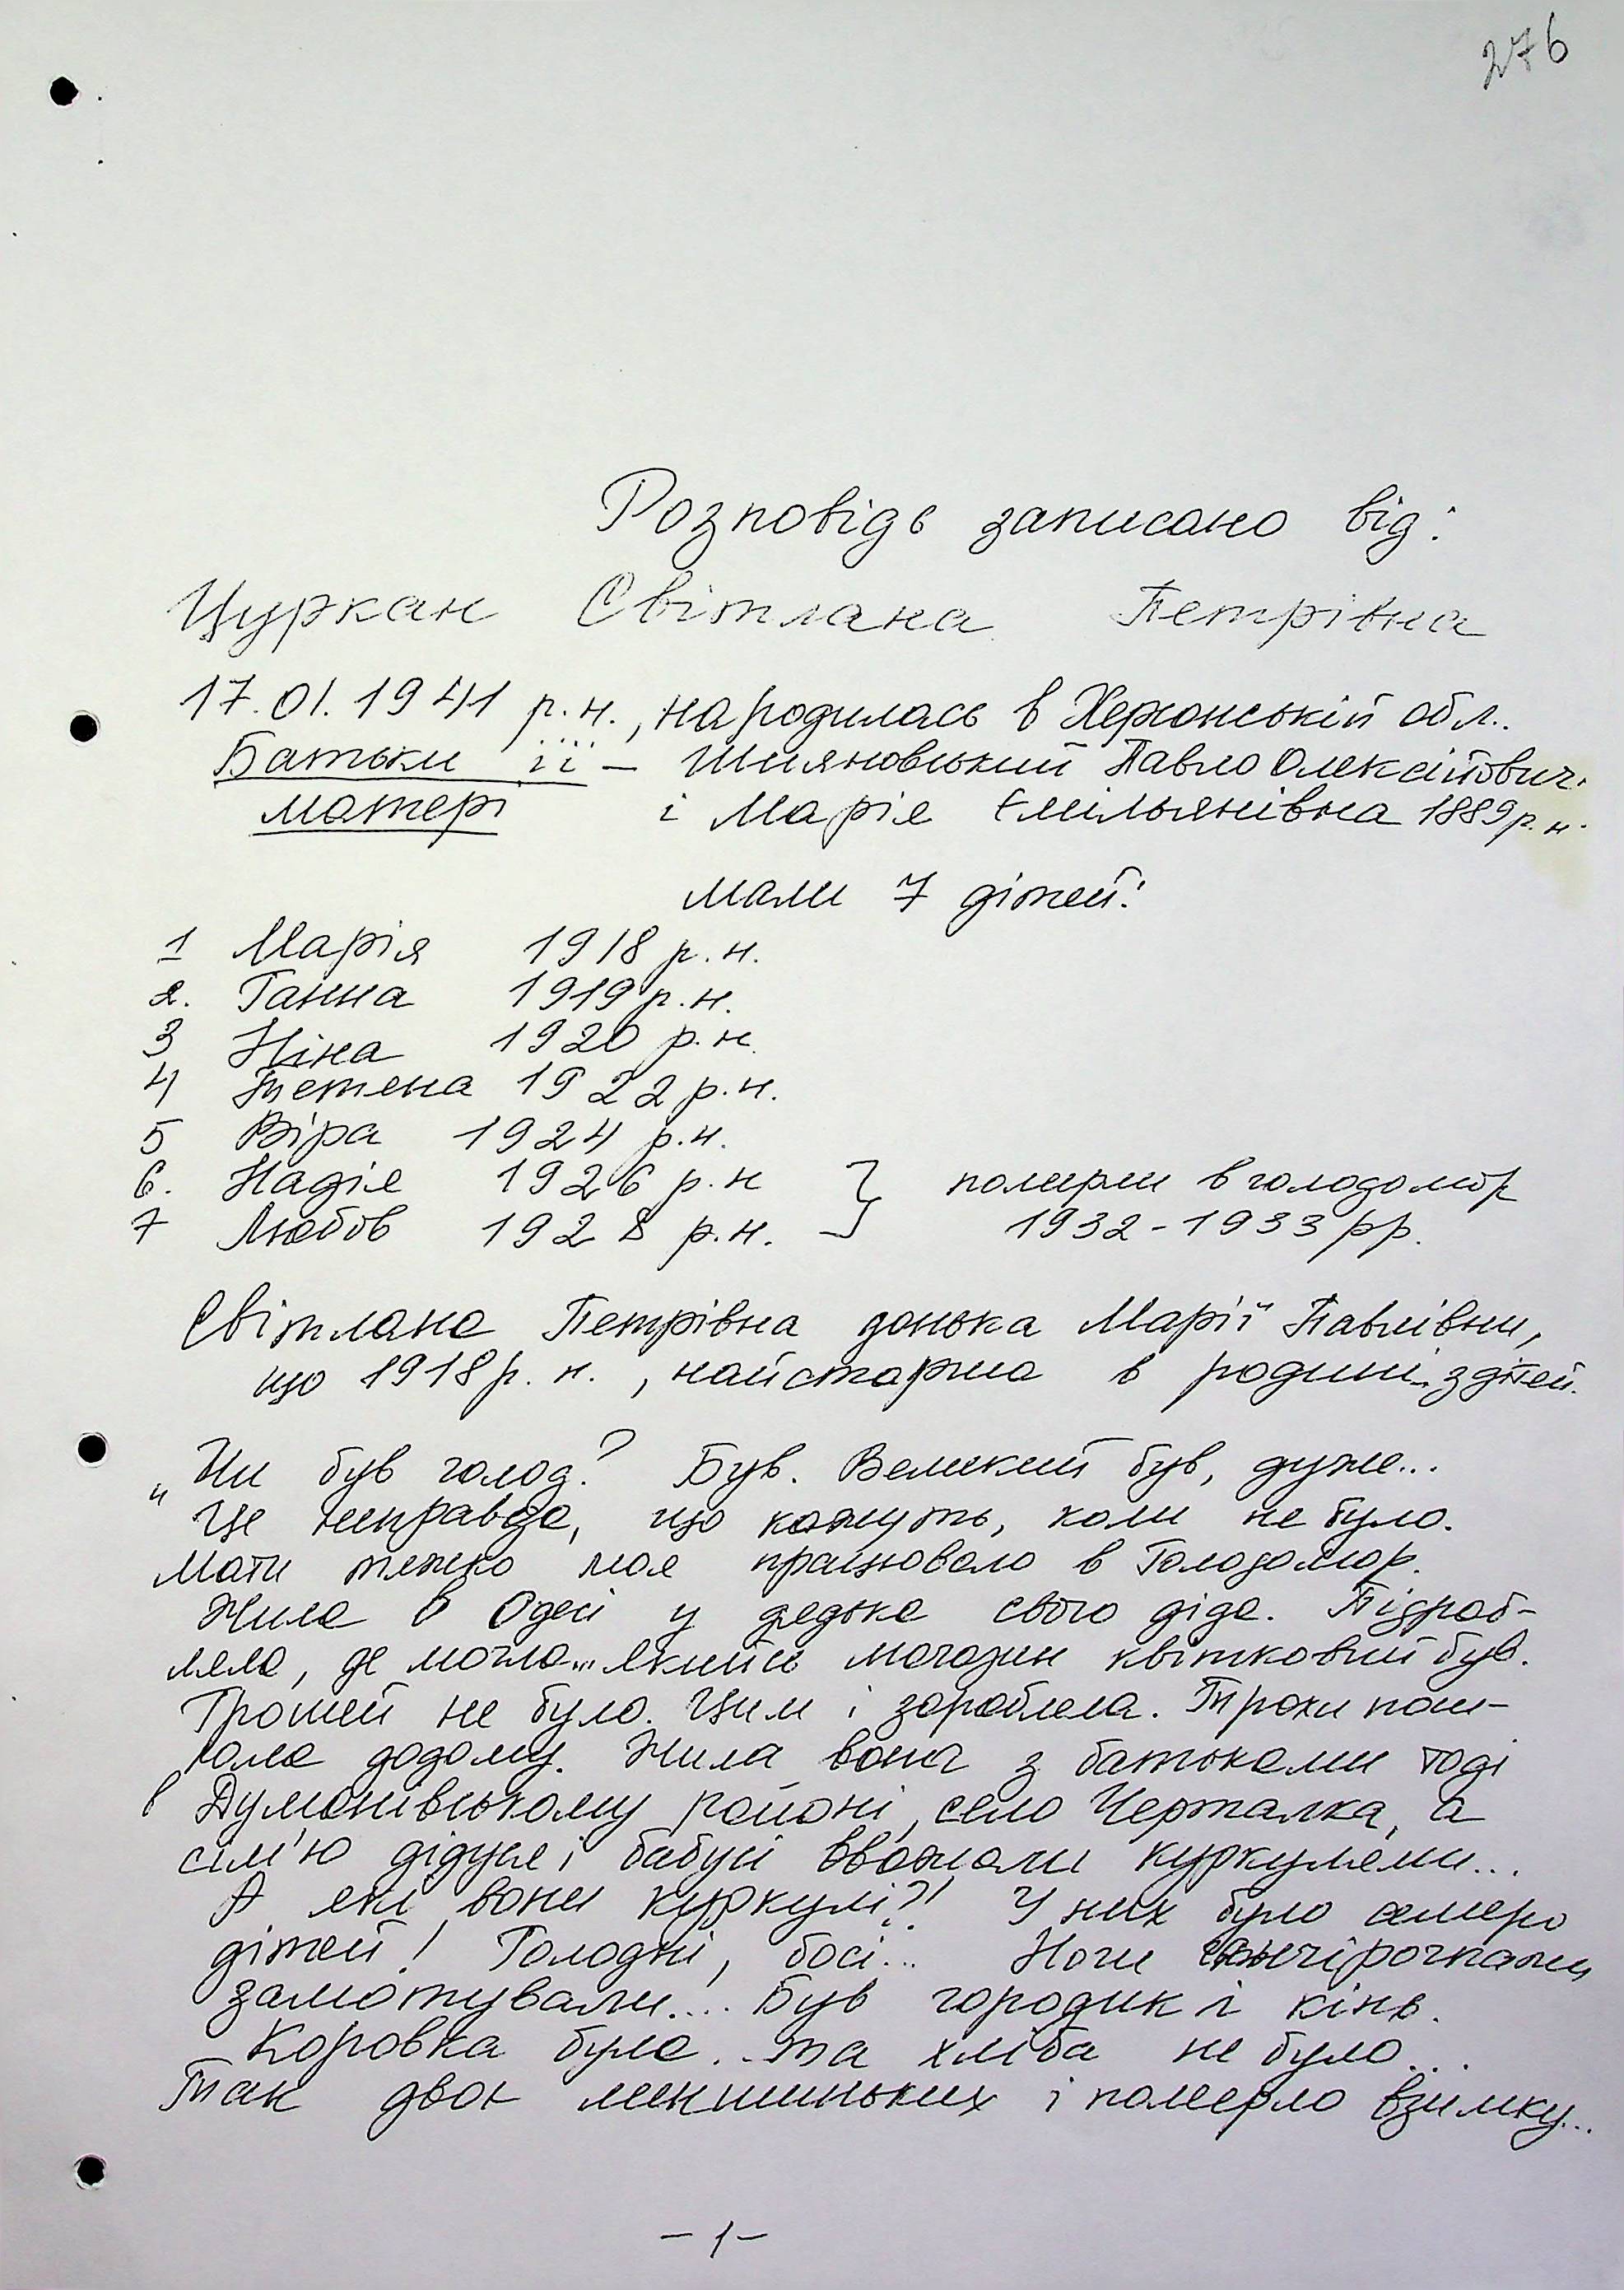 276
Розповідь записано від:
Цуркан Світлана Петрівна
17.01.1941 р.н., народилась в Херсонській обл..
Батьки її – Шиляновський Павло Олексійович
матері і Марія Ємільянівна 1889 р.н.
мали 7 дітей:
1 Марія 1918 р.н.
2. Ганна 1919 р.н.
3 Ніна 1920 р.н.
4 Тетяна 1922 р.н.
5 Віра 1924 р.н.
6. Надія 1926 р.н } померли в голодомор
7 Любов 1928 р.н. 1932-1933 рр.
Світлана Петрівна донька Марії Павлівни,
що 1918 р.н., найстарша в родині з дітей.
„Чи був голод? Був. Великий був, дуже...
Це неправда, що кажуть, коли не було.
Мати тяжко моя працювала в Голодомор.
Жила в Одесі у дядька свого діда. Підроб-
ляла, де могла... якийсь магазин квітковий був.
Грошей не було. Цим і заробляла. Трохи пош-
томе додому. Жила вона з батьками тоді
в Думанівському районі, село Черталка, а
сім'ю дідуся і бабусі вважали куркулями...
А які вони куркулі?! У них було семеро
дітей! Голодні, босі... Ноги ганчірочками
замотували... Був городик і кінь.
Коровка була... та хліба не було...
Так двоє меншиньких і померло взимку...
– 1 –